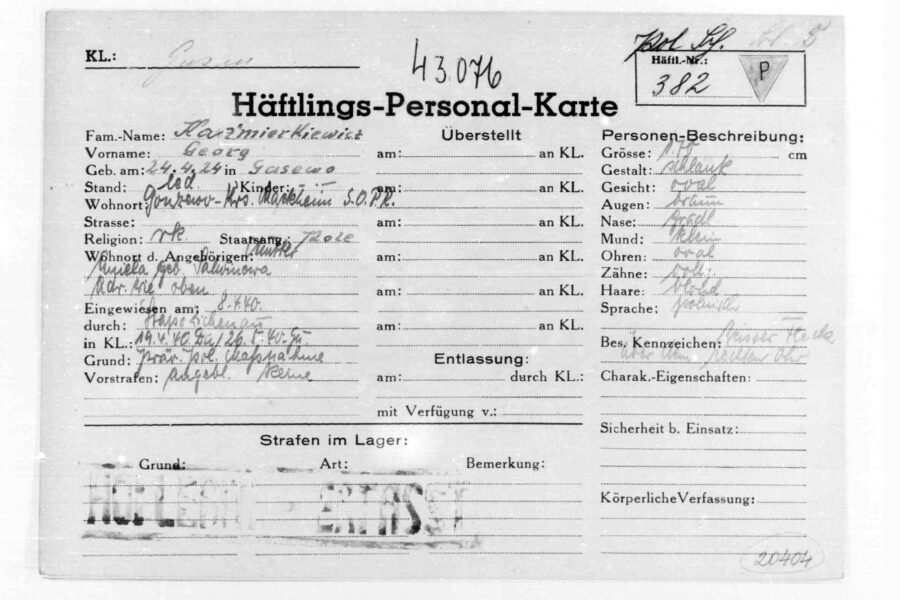 KL.: Gusen
43.076
Pol Sch.
Häftl.-Nr.:
382
P
Häftlings-Personal-Karte
Fam.-Name: Kazmierkiewicz
Vorname: Georg
Geb. am: 24.4.24 in Gasewo
Stand: led Kinder: —
Wohnort: Krs. Mackheim S.O.PR.
Strasse:
Religion: rk. Staatsang.: Pole
Wohnort d. Angehörigen: Mutter
Aniela geb.
Adr. wie oben
Eingewiesen am: 8.4.40.
durch: Stapo Zichenau
in KL.: 19.4.40 Da/26.5.40 Gu
Grund: pol.
Vorstrafen: angebl. keine
Überstellt
am: an KL.
am: an KL.
am: an KL.
am: an KL.
am: an KL.
am: an KL.
Entlassung:
am: durch KL.:
mit Verfügung v.:
Personen-Beschreibung:
Grösse: 175 cm
Gestalt: schlank
Gesicht: oval
Augen: braun
Nase: gradl
Mund: klein
Ohren: oval
Zähne: vollz.
Haare: blond
Sprache: polnisch
Bes. Kennzeichen: weisser Fleck
über dem rechten Ohr
Charak.-Eigenschaften:
Sicherheit b. Einsatz:
Körperliche Verfassung:
Strafen im Lager:
Grund: Art: Bemerkung:
HOLLERITH ERFASST
20404